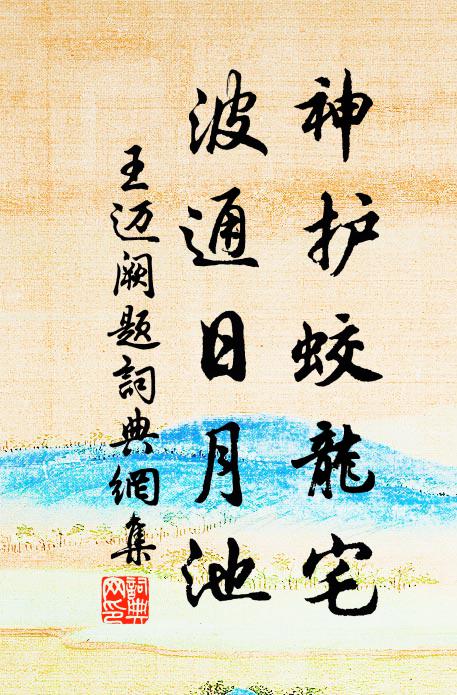 神护蛟龍宅
波通日月池
王迈阙题詞典網集